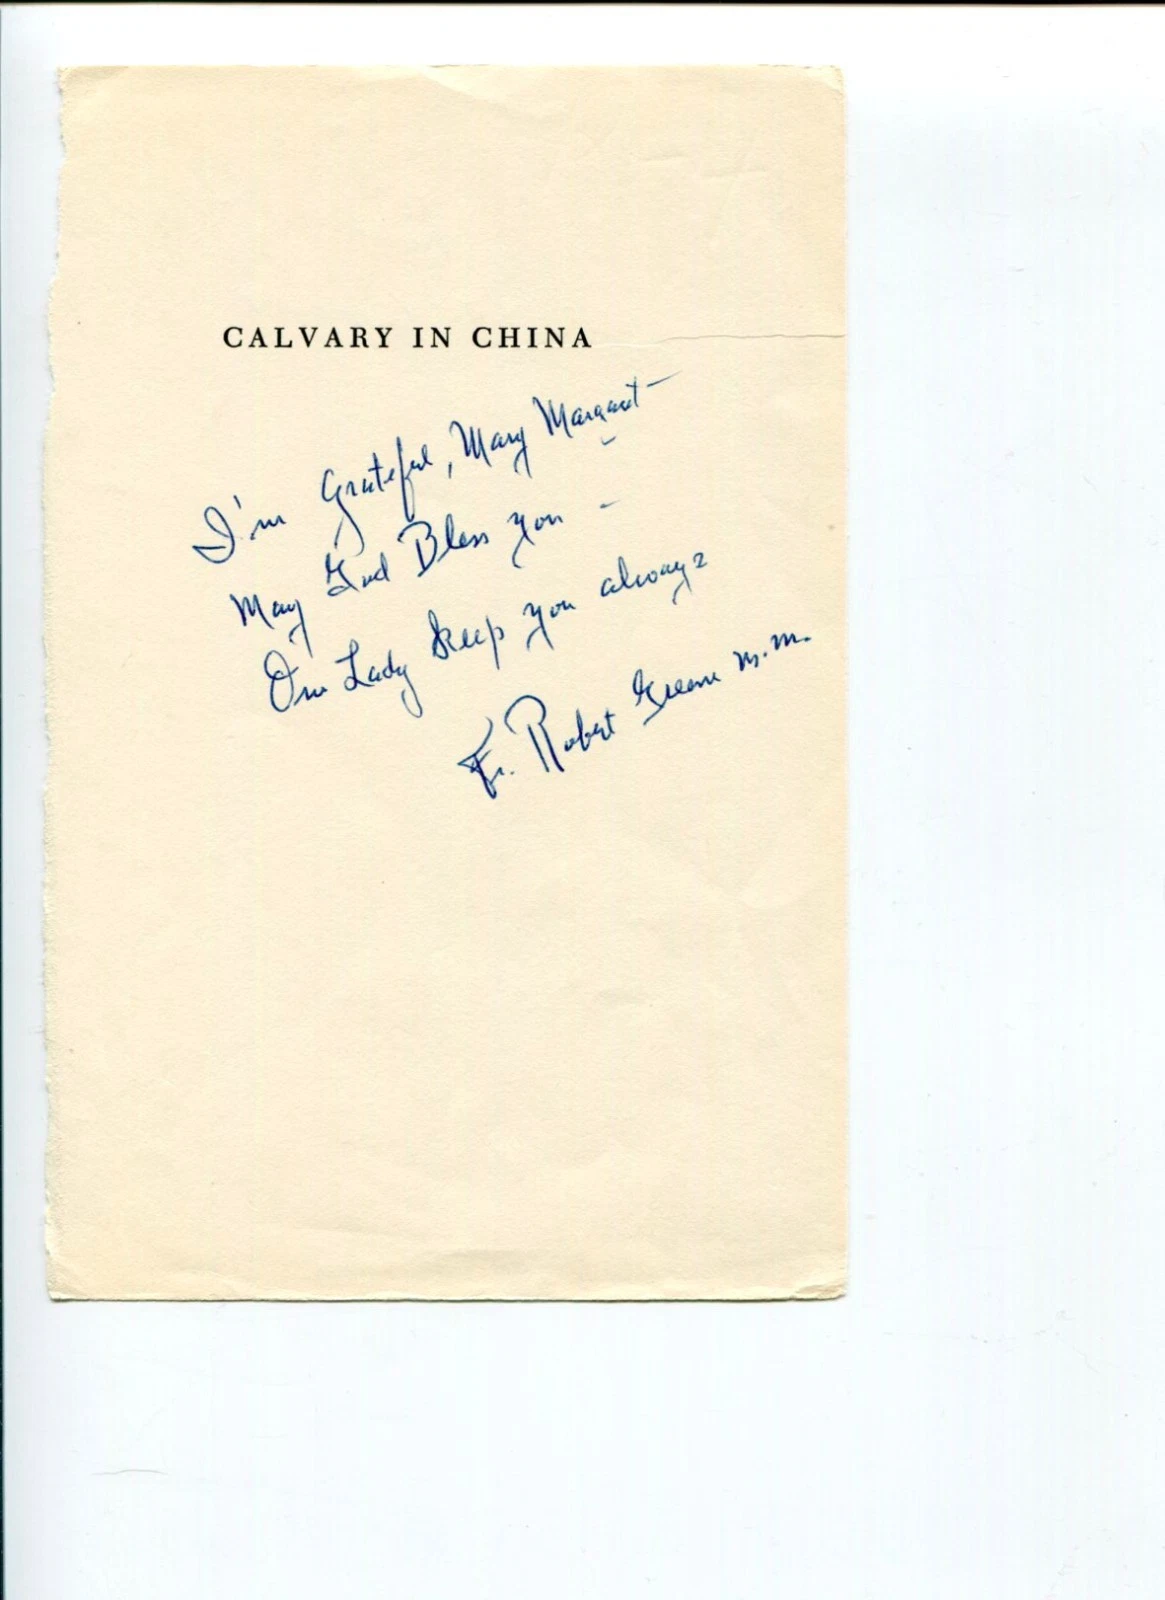 CALVARY IN CHINA
I'm Grateful, Mary Margaret —
May God Bless you —
Our Lady keep you always
Fr. Robert Greene m.m.